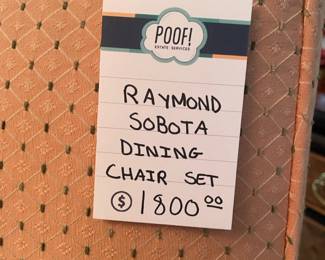 POOF!
ESTATE SERVICES
RAYMOND
SOBOTA
DINING
CHAIR SET
$ 1800.00